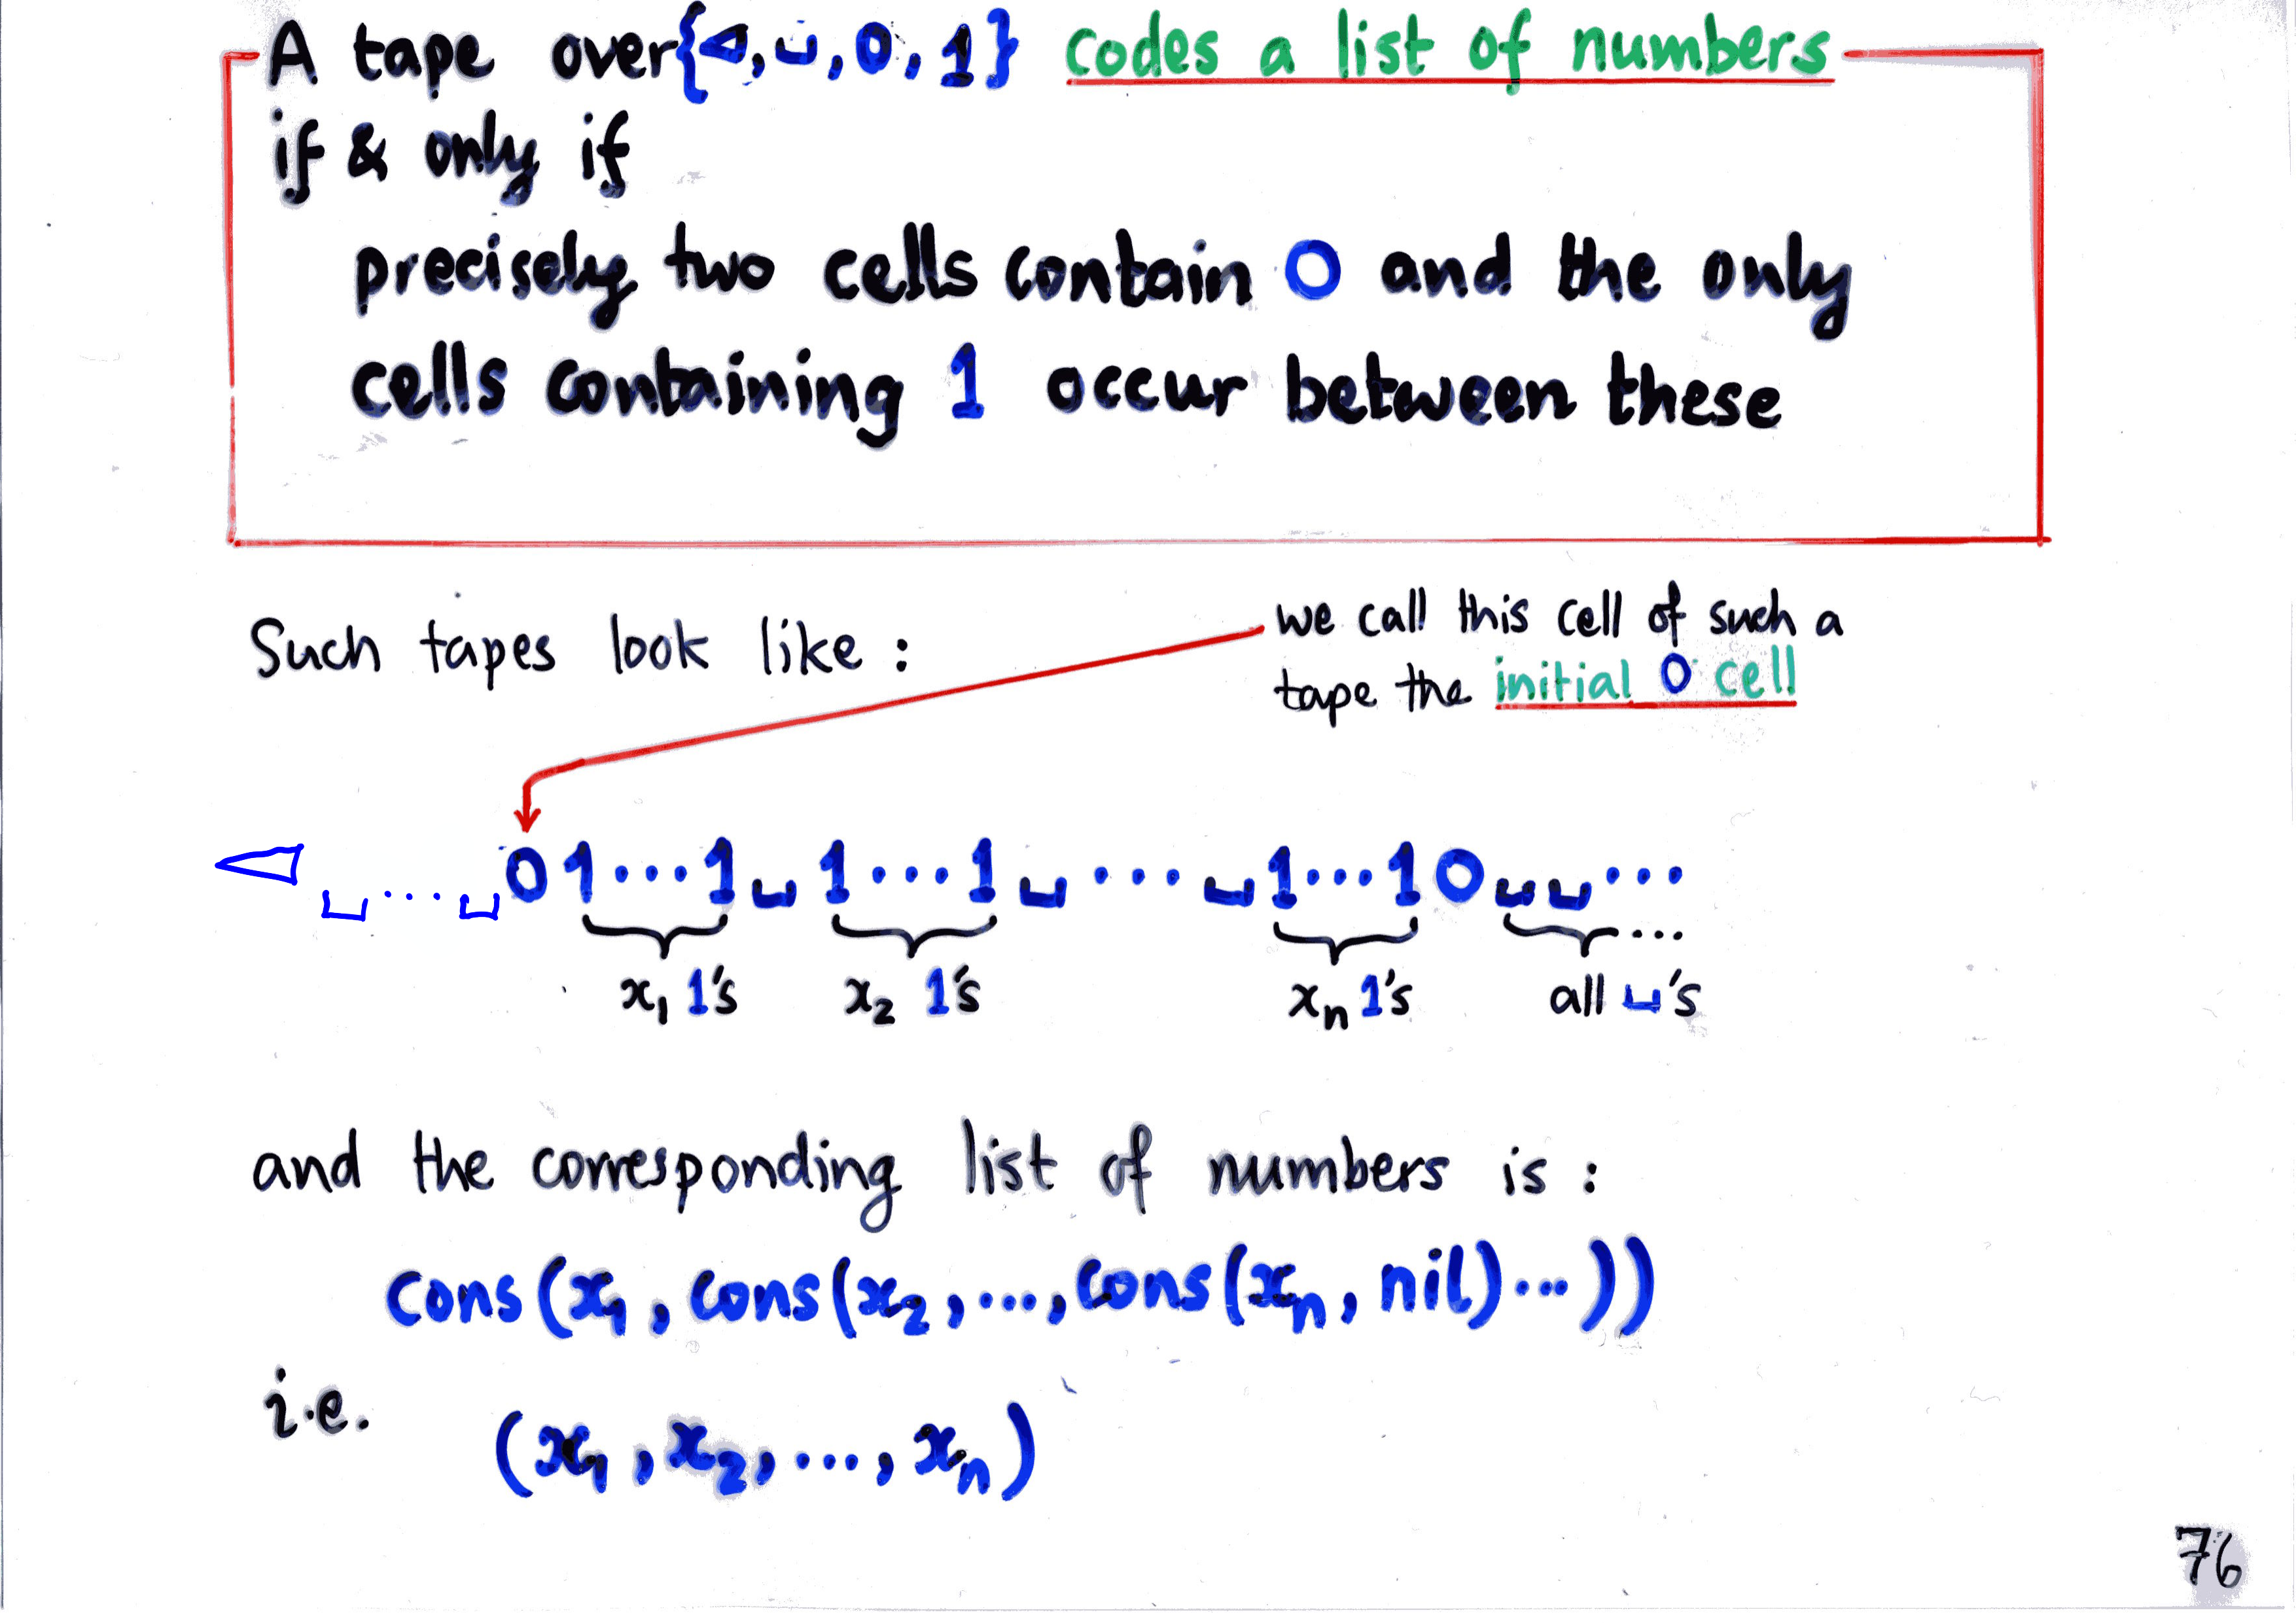 A tape over {◁, ␣, 0, 1} codes a list of numbers
if & only if
precisely two cells contain 0 and the only
cells containing 1 occur between these
Such tapes look like :
we call this cell of such a
tape the initial 0 cell
◁ ␣ ... ␣ 0 1 ... 1 ␣ 1 ... 1 ␣ ... ␣ 1 ... 1 0 ␣ ␣ ...
x₁ 1's x₂ 1's xₙ 1's all ␣'s
and the corresponding list of numbers is :
cons(x₁, cons(x₂, ..., cons(xₙ, nil) ... ))
i.e.
(x₁, x₂, ..., xₙ)
76